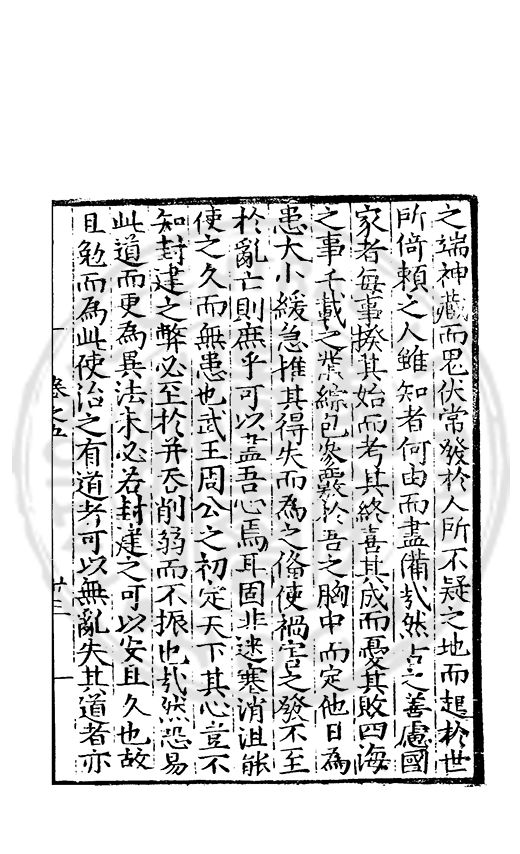 之端神藏而鬼伏常發於人所不疑之地而起於世
所倚賴之人雖知者何由而盡備哉然古之善慮國
家者每事揆其始而考其終喜其成而憂其敗四海
之事千載之業綜包參覈於吾之胸中而定他日為
患大小緩急推其得失而為之備使禍害之發不至
於亂亡則庶乎可以盡吾心焉耳固非逆塞消沮能
使之久而無患也武王周公之初定天下其心豈不
知封建之弊必至於并吞削弱而不振也哉然恐易
此道而更為異法未必若封建之可以安且久也故
且勉而為此使治之有道者可以無亂失其道者亦
卷之五